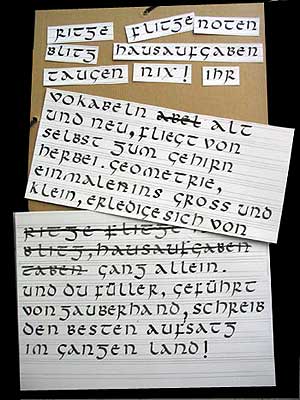 RITZE FLITZE NOTEN
BLITZ HAUSAUFGABEN
TAUGEN NIX! IHR
VOKABELN ABEL ALT
UND NEU, FLIEGT VON
SELBST ZUM GEHIRN
HERBEI. GEOMETRIE,
EINMALEINS GROSS UND
KLEIN, ERLEDIGE SICH VON
RITZE FLITZE
BLITZ, HAUSAUFGABEN
TABEN GANZ ALLEIN.
UND DU FÜLLER, GEFÜHRT
VON ZAUBERHAND, SCHREIB
DEN BESTEN AUFSATZ
IM GANZEN LAND!